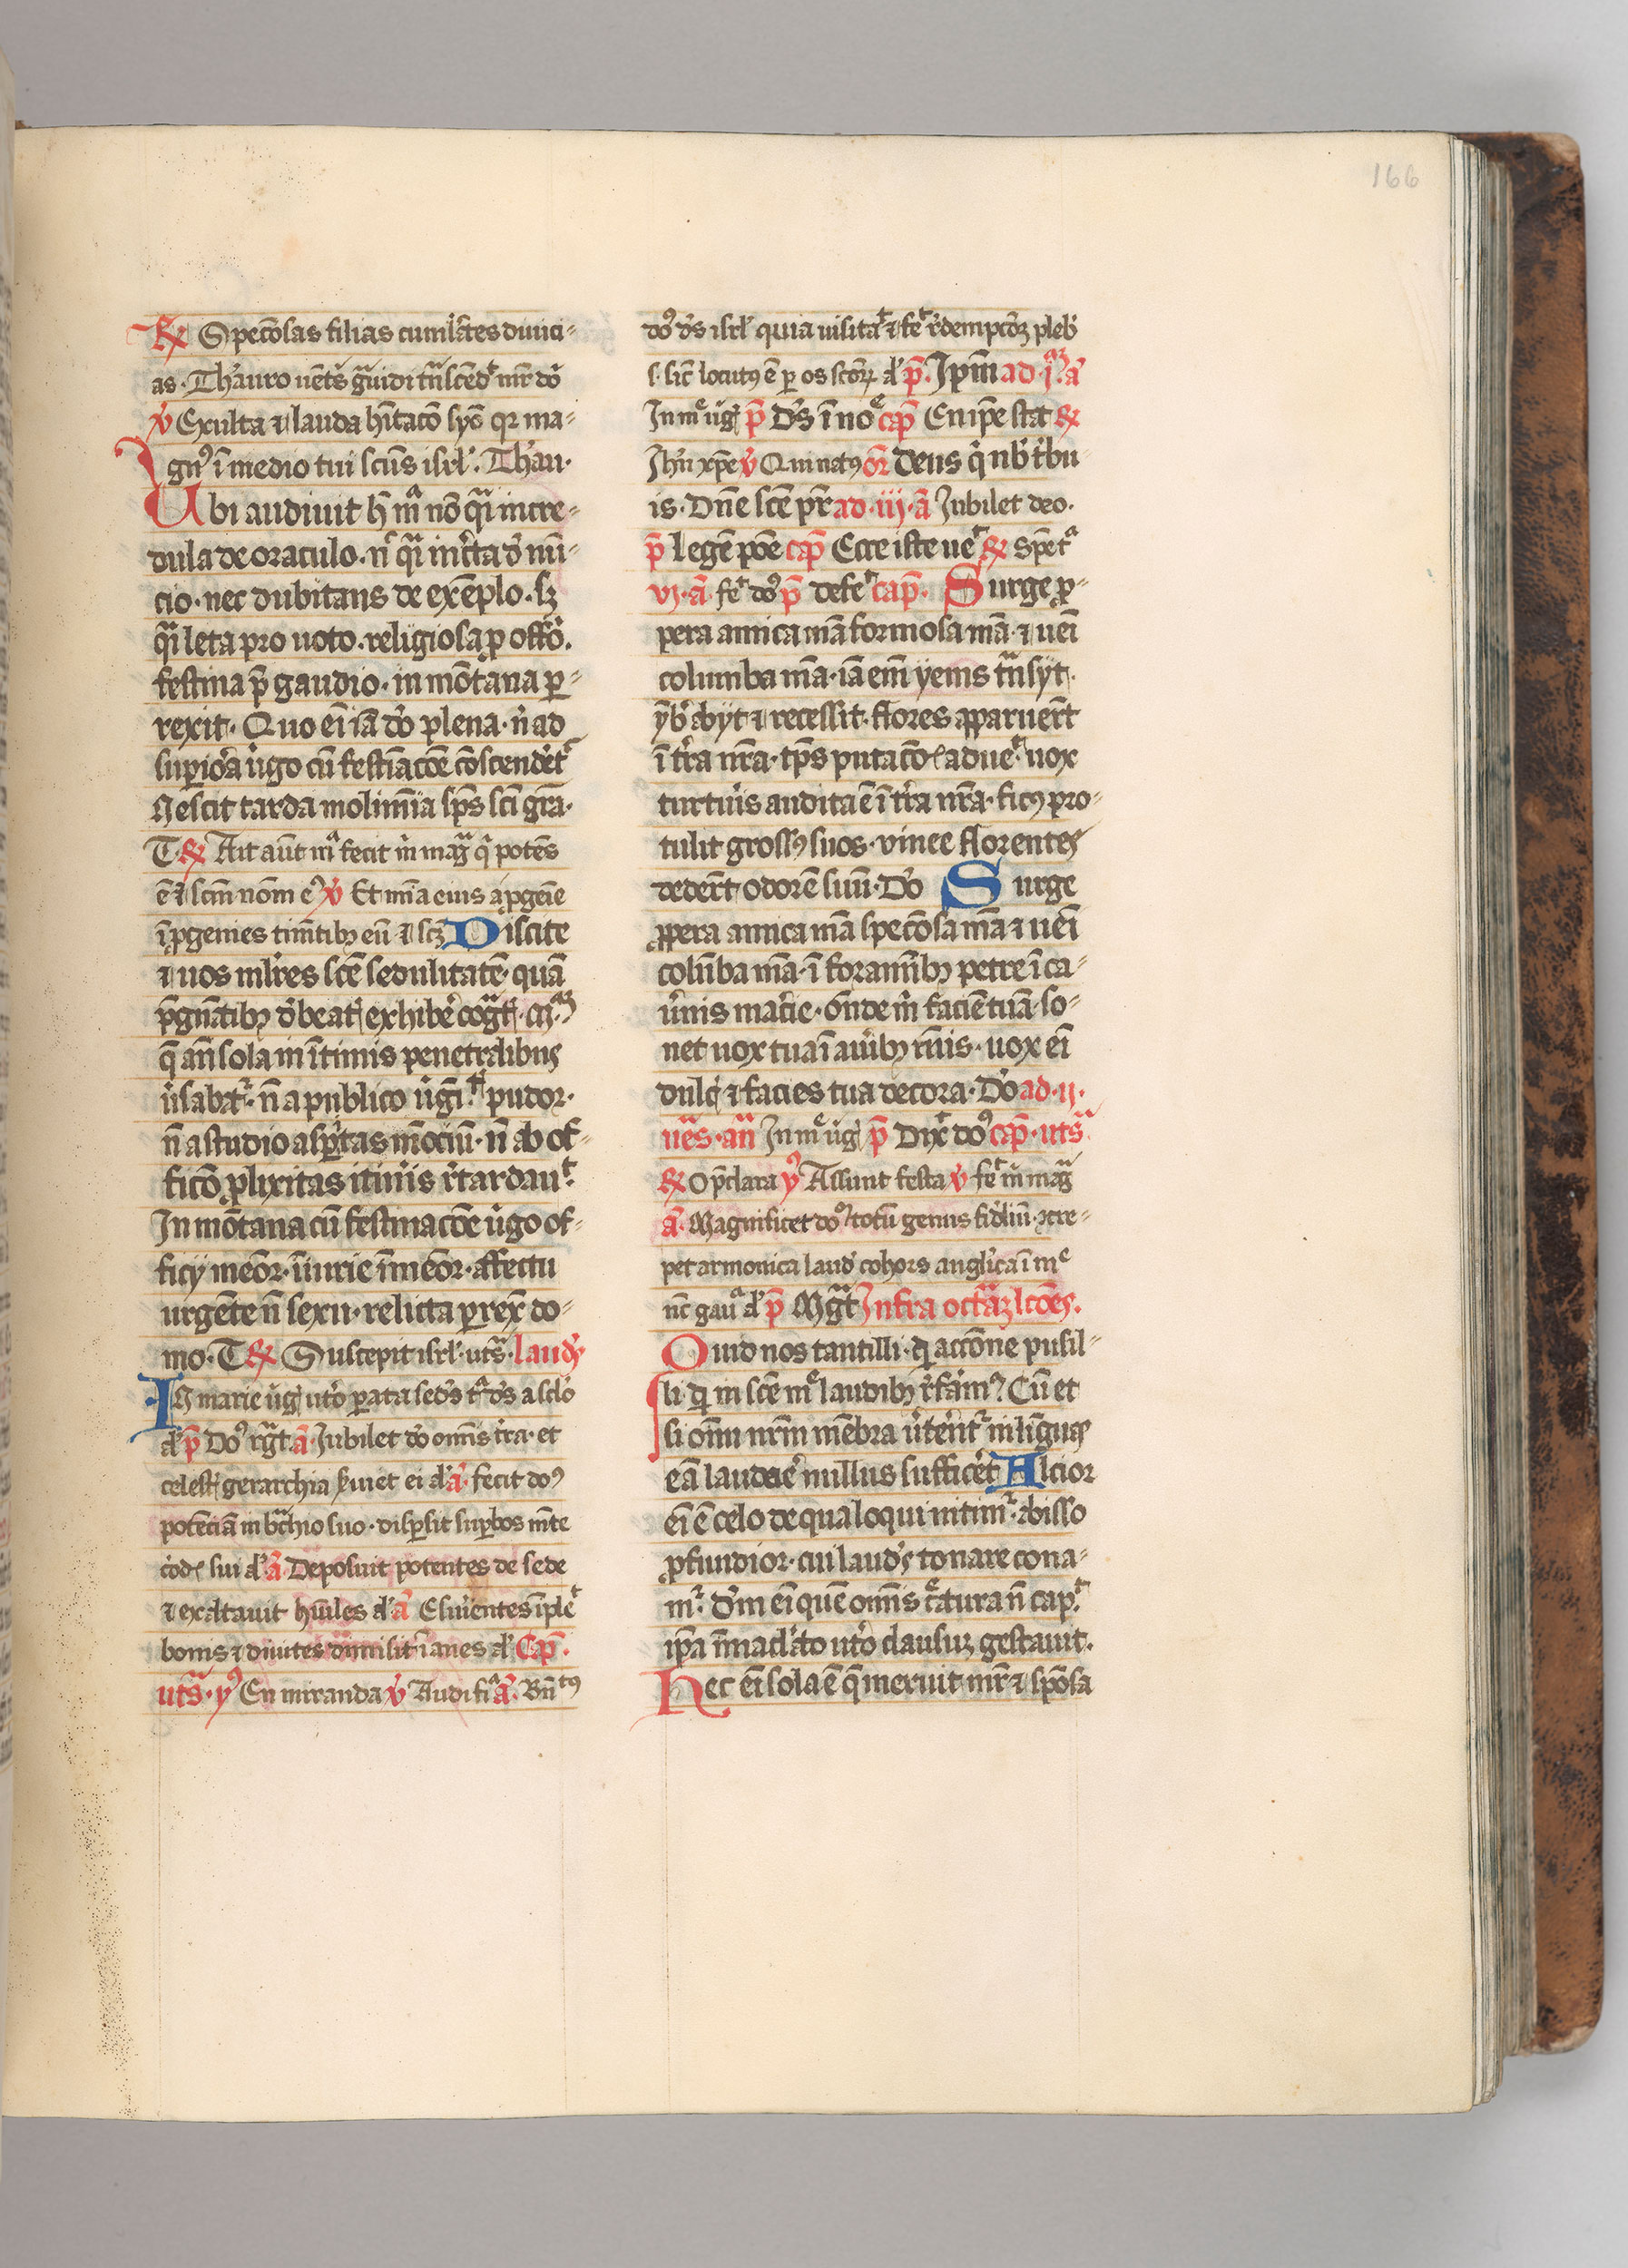 166
℟ Specōsas filias cumlātes diuici-
as. Thauro uētꝭ grauidi tn̄scēdt mr̄ do
℣ Exulta ⁊ lauda hītacō syō qr ma-
gnꝰ ī medio tui scūs isrl'. Thau.
Ubi audiuit h̄ mͣ nō qͣi incre-
dula de oraculo. nͨ qͣi incta d' nū-
cio. nec dubitans de exēplo. sꝫ
qͣi leta pro uoto. religiosa ꝓ offō.
festina p̄ gaudio. in mōtana ꝑ-
rexit. Quo eī iā dō plena. n̄ ad
suꝑiora ūgo cū festīacōe cōscendēt
Nescit tarda molimīa sp̄s sc̄i gr̄a.
T. ℟ Ait aūt mͣ fecit m̄ magͣ qͥ potēs
ē ⁊ scm̄ nom eꝰ ℣ Et mīa eius a ꝓgēie
ī ꝓgenies timētibꝫ eū ⁊ scꝫ Discite
⁊ uos mlīres sc̄e sedulitatē. quā
p̄gnātibꝫ d'beatꝭ exhibē cogͣtꝭ. Mͣꝫ
q̄ an̄ sola in ītimis penetralibus
ūsabat'. n̄ a publico ūgītͭ pudor.
n̄ a studio asꝑitas mōciū. n̄ ab of-
ficō ꝓlixitas itineris r̄tardauͭ.
In mōtana cū festinacōe ūgo of-
ficij mēor. īiurie īmēor. affectu
urgēte n̄ sexu. relicta ꝑrex̄ do-
mo. T ℟ Suscepit isrl'. utsͣ. laudꝭ
IN marie ūgꝭ utō ꝑata sedꝭ tͬ d's a sclo
al' p̄ Doꝰ rgͣt ā. Iubilet dō omīs tr̄a. et
celestꝭ gerarchia suiet ei al' ā. fecit doꝰ
potēciā in bͣchio suo. disꝑsit suꝑbos mēte
codꝭ sui al' ā Deposuit potentes de sede
⁊ exaltauit hūiles al' ā Esurientes īpleͭ
bonis ⁊ diuites dimisit īanes al' Cap̄.
utsͣ. yꝰ En miranda ℣ Audi fiͣ ā. Bn̄tꝰ
doꝰ d's isrl' quia uisitaͭ ⁊ feͭ r̄dempcōꝫ pleb'
s. sic̄ locutꝰ ē ꝑ os sctōꝝ al' p̄. Ip̄m ad .jͣꝫ. ā
In mͤ ūgꝭ p̄ D's ī noͤ cap̄ En ip̄e stat ℟
Ihū xp̄e ℣ Qui natꝰ or̄ Deus qͥ nb' t'bu
is. Dn̄e sc̄e pr̄ ad .iij. ā Iubilet deo.
p̄ legē pōe cap̄ Ecce iste ueͭ ℟ spetͣ
vj. ā. feͭ doꝰ p̄ defeͭ cap̄. Surge ꝓ-
pera amica mā formosa mā. ⁊ uēi
columba mā. iā em̄ yems tn̄syt.
ȳb' abijt ⁊ recessit. flores apparuert
ī tr̄a nr̄a. tp̄s putacōꝭ adueͭ. uox
turturis audita ē ī tr̄a nr̄a. ficꝰ pro-
tulit grossꝰ suos. vinee florentes
dederūt odorē suū. Dō Surge
ꝓpera amica mā specōsa mā ⁊ uēi
colūba mā. ī foramībꝫ petre ī ca-
ūnis macie. ōnde m̄ faciē tuā. so-
net uox tua ī auribꝫ meis. uox eī
dulcꝭ ⁊ facies tua decora. Dō ad .ij.
uēs. an̄ In mͤ ūgꝭ p̄ Dixͭ doꝰ cap̄. utsͣ.
℟ O p̄clara yꝰ Assunt festa ℣ feͭ m̄ magͣ
ā. Magnificet doꝰ totū genus fidliū. ꝯcre-
pet armonica laudꝭ cohors anglica ī mͤ
nc̄ gauͣ al' p̄ Mgͣt Infra octͣaꝫ lcōes.
Quid nos tantilli. qd' accōne pusil-
li qd' in sc̄e mͤ laudibꝫ r̄fāmꝰ? Cū et
si om̄ nr̄m mēbra ūterēt' in līguas
eā laudaē nullus sufficēt Alcior
eī ē celo de qua loqui nitim'. abisso
ꝓfundior. cui laudꝭ tonare cona-
m'. d'm eī quē omīs cͤatura n̄ capͭ.
ip̄a īmaclato utō clausuꝫ gestauit.
Hec eī sola ē q̄ meruit mr̄ ⁊ spōsa